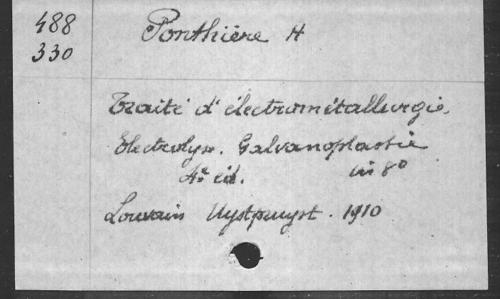 488
330
Ponthière H
Traité d'électrométallurgie.
Electrolyse. Galvanoplastie
4e éd. in 8o
Louvain Uystpruyst. 1910